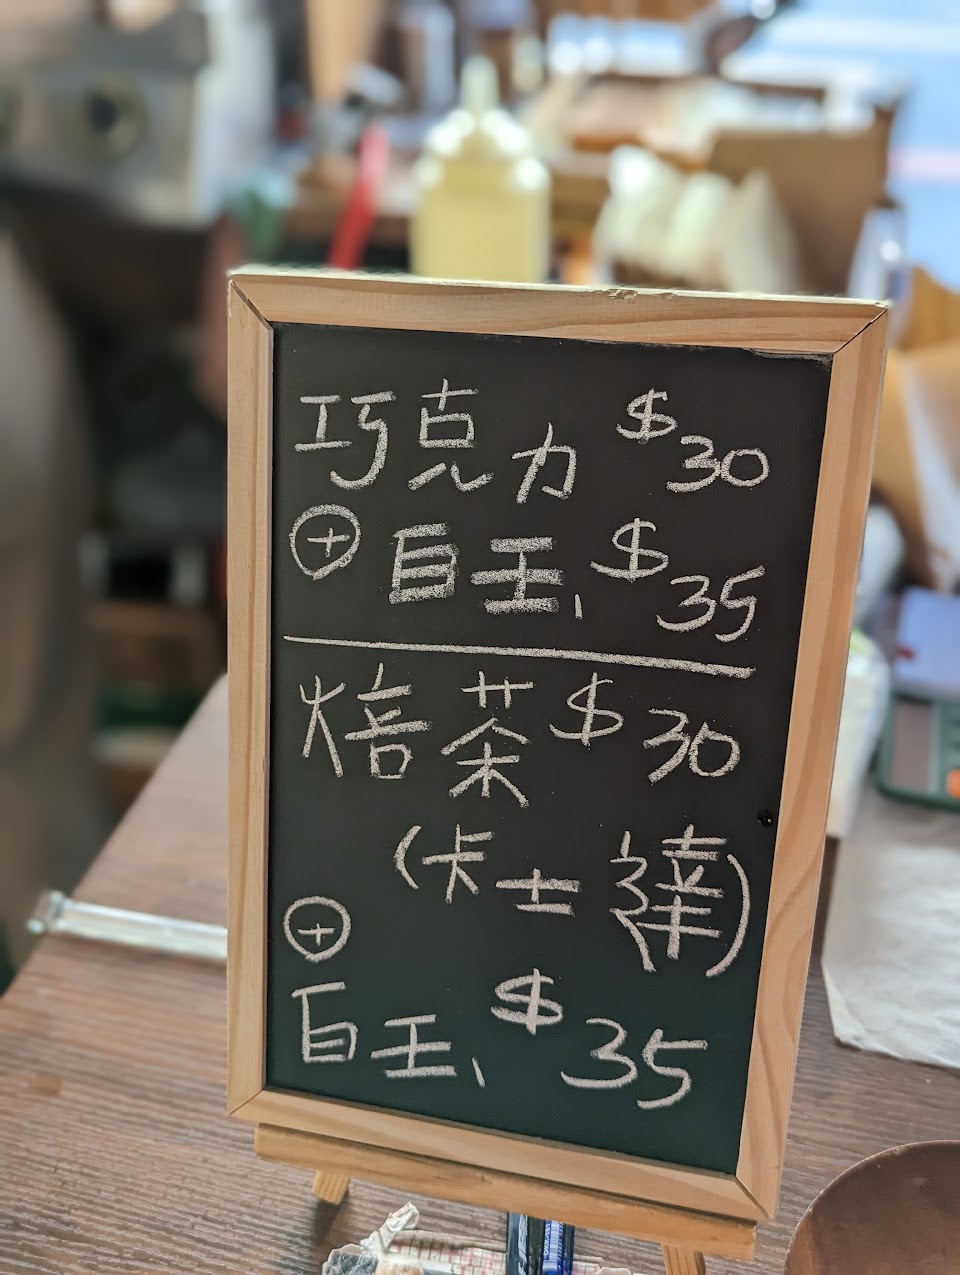 巧克力 $30
⊕ 白玉 $35
焙茶 $30
(卡士達)
⊕
白玉 $35